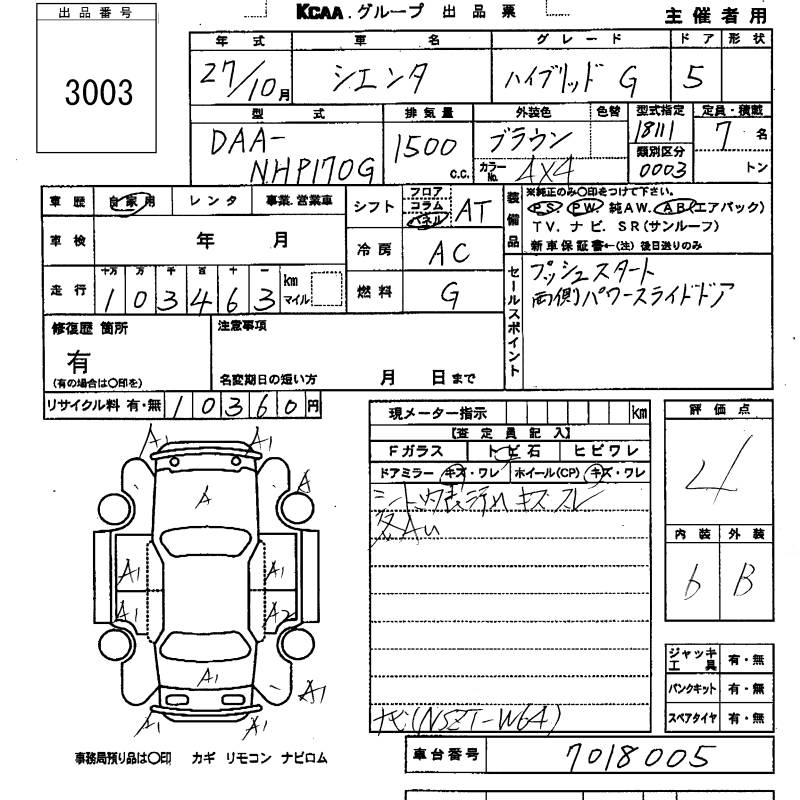 出品番号
3003
KCAA.グループ 出品票
主催者用
年式 車名 グレード ドア 形状
27/10月 シエンタ ハイブリッド G 5
型式 排気量 外装色 色替 型式指定 定員・積載
DAA-NHP170G 1500 c.c. ブラウン 18111 7名
カラーNo. 4X4 類別区分 0003 トン
車歴 自家用 レンタ 事業.営業車
シフト フロア コラム パネル AT
装備品 ※純正のみ○印をつけて下さい。
PS. PW. 純AW. AB(エアバック)
TV. ナビ. SR(サンルーフ)
新車保証書←(注)後日送りのみ
車検 年 月
冷房 AC
走行 十万 万 千 百 十 一
103463 km マイル
燃料 G
セールスポイント
プッシュスタート
両側パワースライドドア
修復歴 箇所
有
(有の場合は○印を)
注意事項
名変期日の短い方 月 日まで
リサイクル料 有・無 10360円
現メーター指示 km
【査定員記入】
Fガラス トビ石 ヒビワレ
ドアミラー キズ・ワレ ホイール(CP) キズ・ワレ
キズ スレ
各AU
ナビ(NSZT-W64)
評価点
4
内装 外装
6 B
ジャッキ工具 有・無
パンクキット 有・無
スペアタイヤ 有・無
A1 A1
A A
A1 A1
A1 A2
A1 A1
A1 A1
事務局預り品は○印 カギ リモコン ナビロム
車台番号 7018005